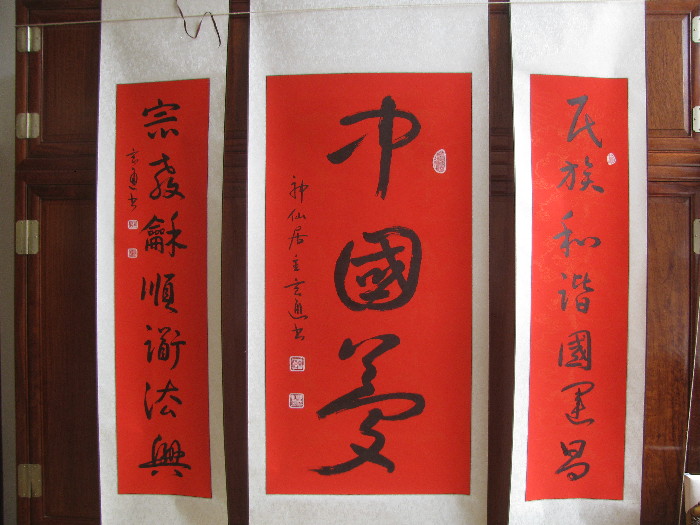 民族和谐國運昌
中國夢
神仙居主玄通书
宗教龢順謝法興
玄通书